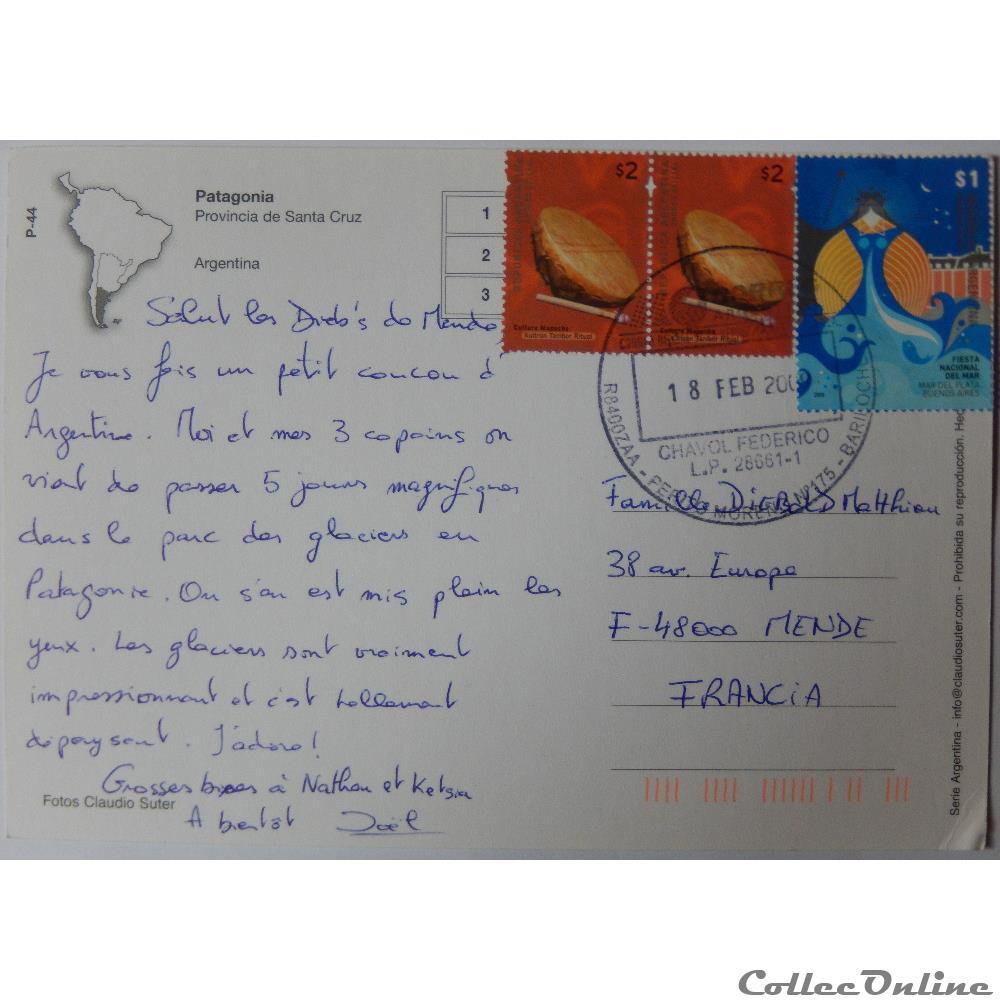 P-44
Patagonia
Provincia de Santa Cruz
Argentina
1
2
3
$2
$2
$1
Cultura Mapuche
Kultrún Tambor Ritual
Cultura Mapuche
Kultrún Tambor Ritual
FIESTA
NACIONAL
DEL MAR
MAR DEL PLATA
BUENOS AIRES
18 FEB 200
CHAVOL FEDERICO
L.P. 28661-1
R8400ZAA - PERITO MORENO Nº175 - BARILOCHE
Salut les Dieb's de Mende
Je vous fais un petit coucou d'
Argentine. Moi et mes 3 copains on
vient de passer 5 jours magnifiques
dans le parc des glaciers en
Patagonie. On s'en est mis plein les
yeux. Les glaciers sont vraiment
impressionnant et c'est tellement
dépaysant. J'adore!
Grosses bises à Nathan et Ketsia
A bientôt Joël
Famille DIEBOLD Matthieu
38 av. Europe
F-48000 MENDE
FRANCIA
Fotos Claudio Suter
Serie Argentina - info@claudiosuter.com - Prohibida su reproducción. Hec
CollecOnline